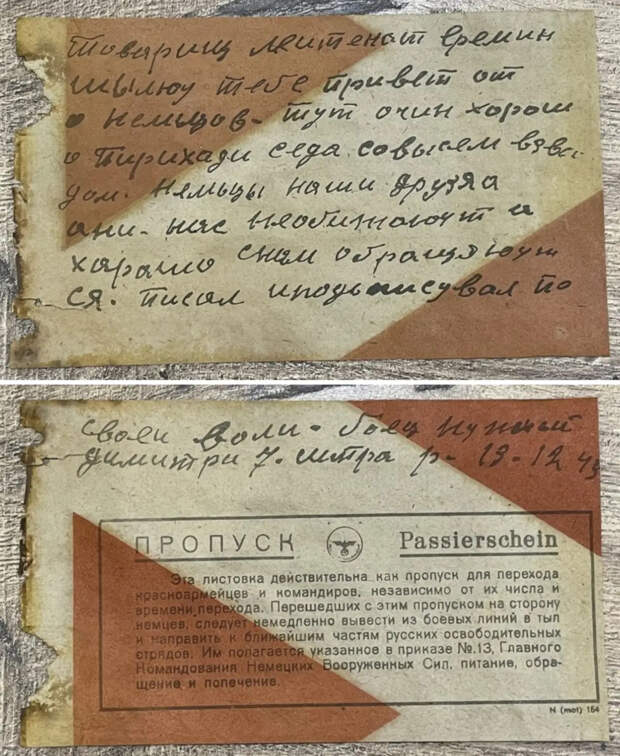 Товарищ лейтенат Еремин
шылюу тебе привет от
о немцов. тут очин хорош
о пирихади седа совысем взво
дом. Немьцы наши друзяа
ани. нас необижаюут а
харашо снам обращяюут
ся. писал иподьписувал по
своеи воли. боец
димитри 7. р 13-12 43
ПРОПУСК Passierschein
Эта листовка действительна как пропуск для перехода
красноармейцев и командиров, независимо от их числа и
времени перехода. Перешедших с этим пропуском на сторону
немцев, следует немедленно вывести из боевых линий в тыл
и направить к ближайшим частям русских освободительных
отрядов. Им полагается указанное в приказе №.13, Главного
Командования Немецких Вооруженных Сил, питание, обра-
щение и попечение.
N (mot) 164